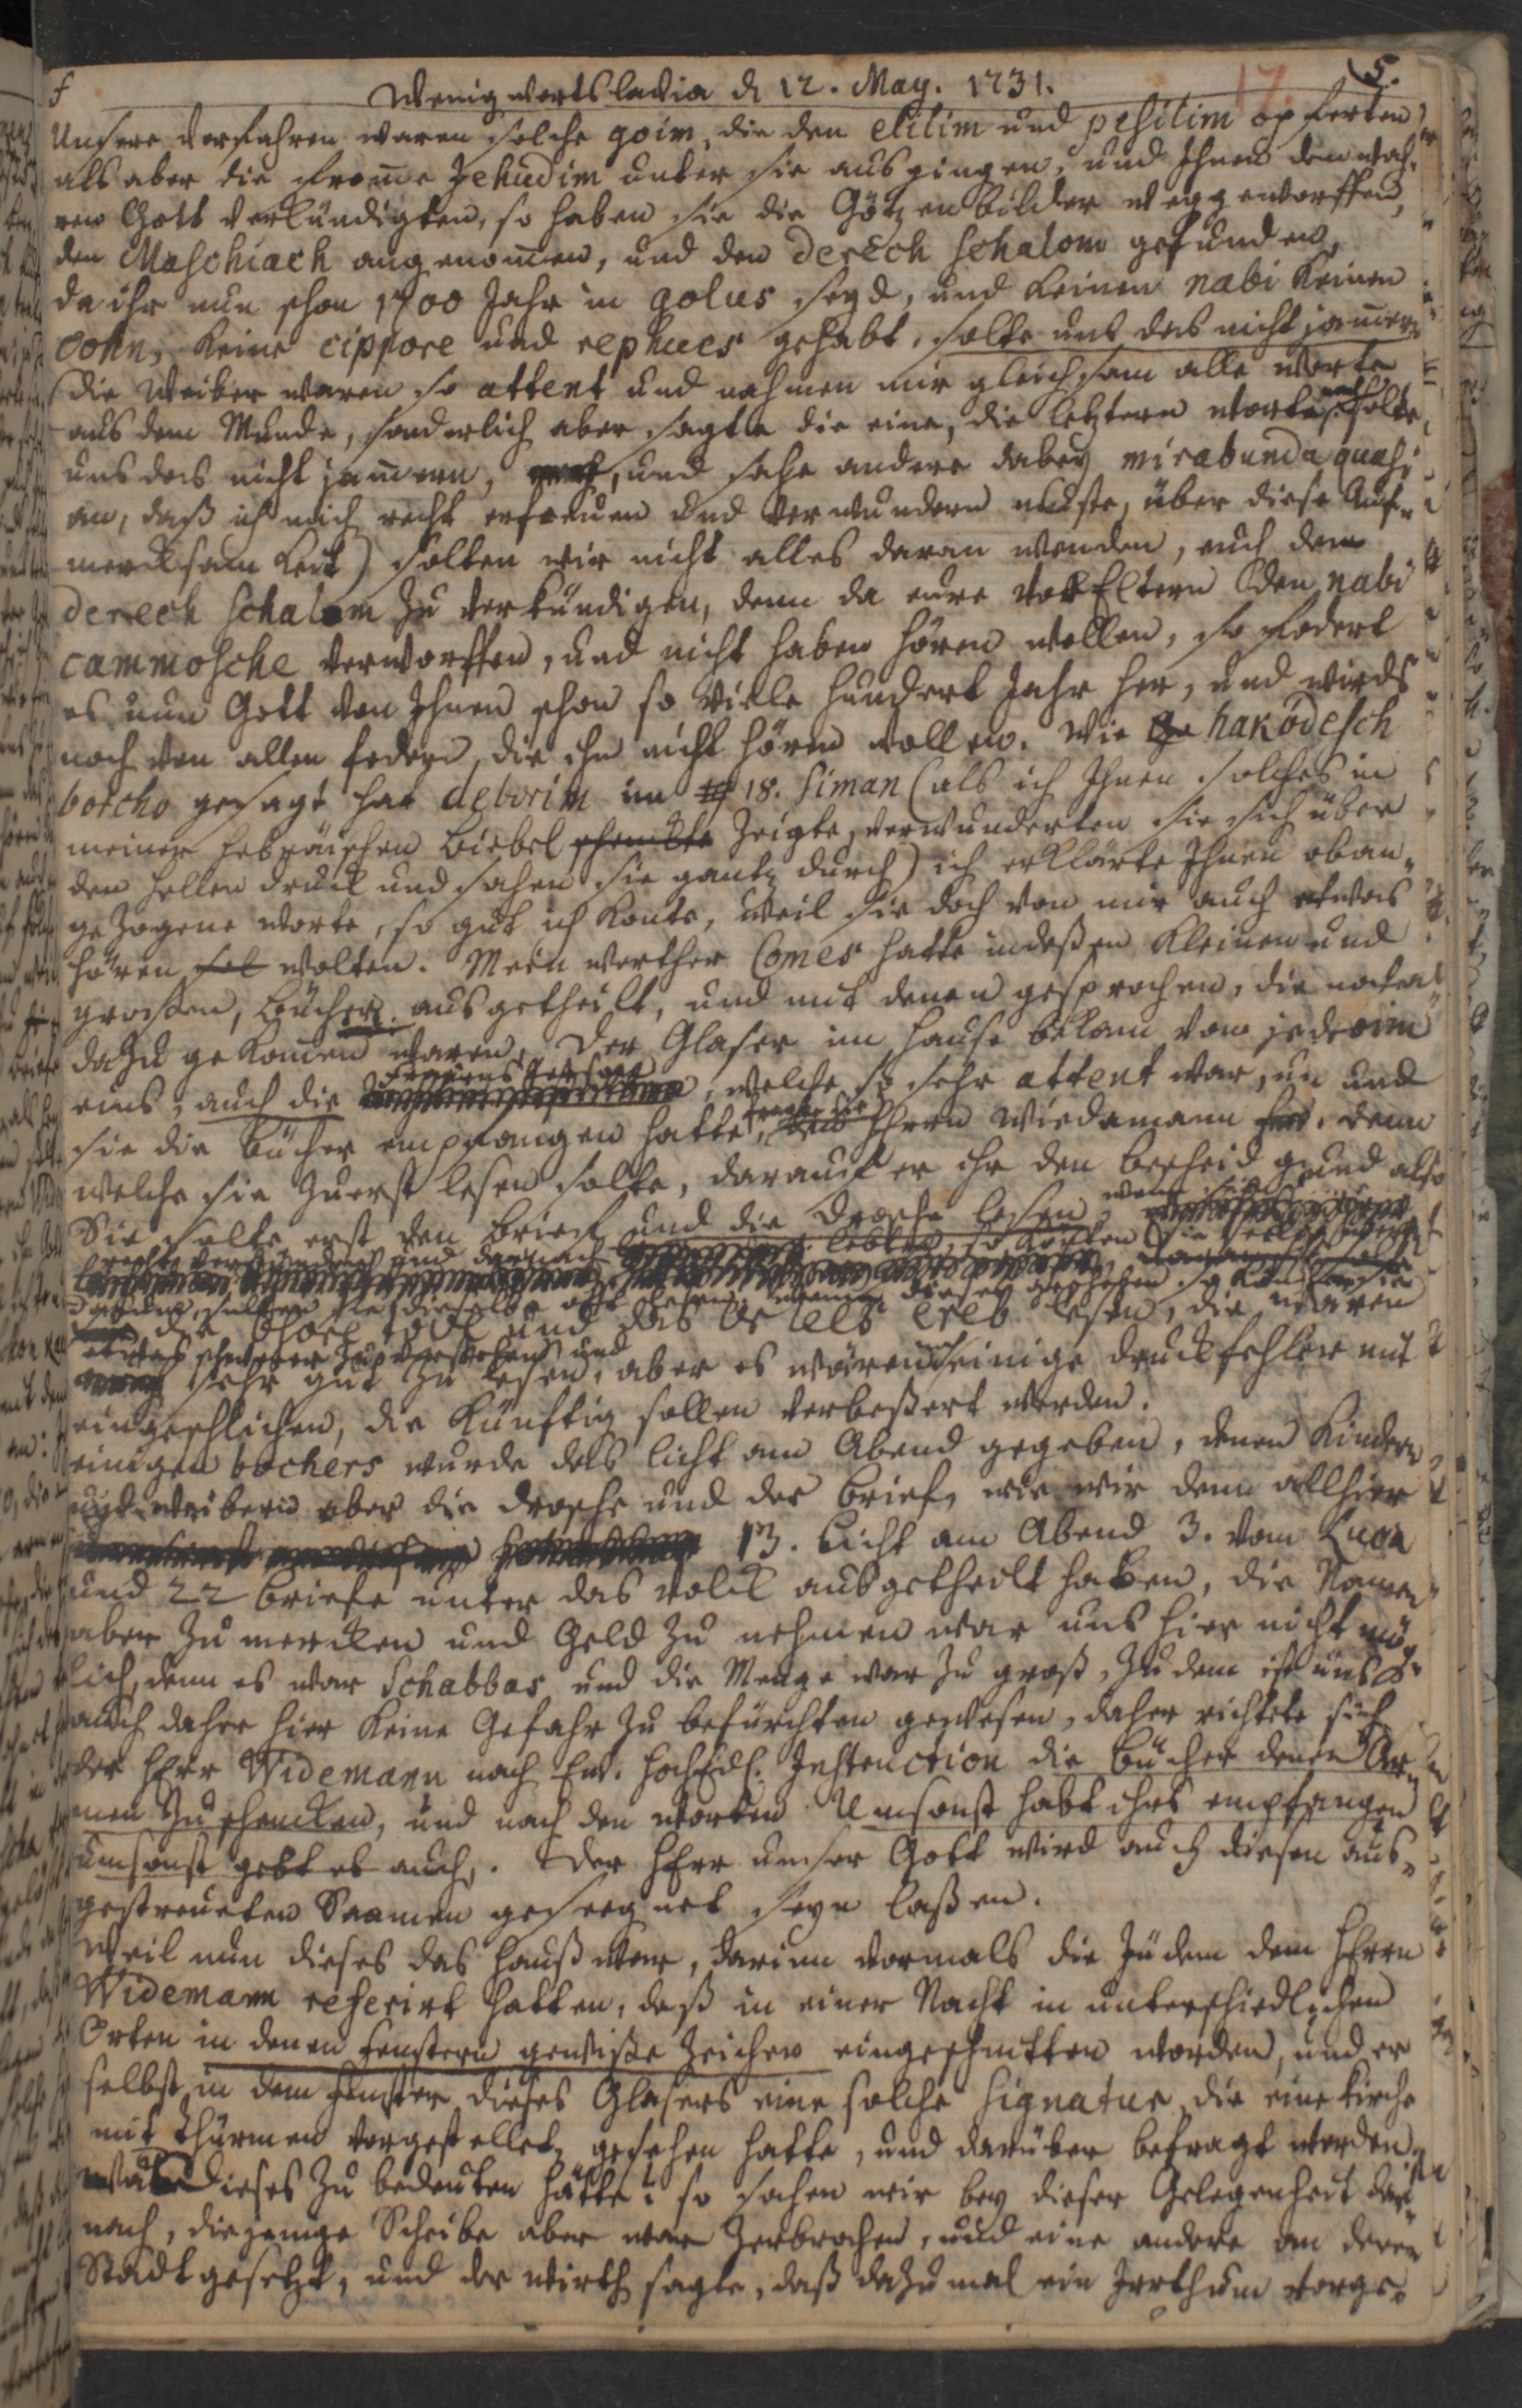 Wenigwortsladia d 12. May. 1731. 17. 5.
Unsere Vorfahren waren solche goim, die den elilim und pesilim opferten
als aber die from̄e Jehudim unter sie ausgingen, und Ihnen den wah-
ren Gott verkündigten, so haben sie die Götzenbilder weggeworffen,
den Maschiach angenom̄en, und den derech schalom gefunden,
da ihr nun schon 1700 Jahr in golus seyd, und keinen nabi keinen
cohn, keine cippore und rephues gehabt, solte uns das nicht jam̄ern
(die Weiber waren so attent und nahmen mir gleichsam alle Worte
aus dem Munde, sonderlich aber sagte die eine, die letztern Worte nach: solte
uns das nicht jam̄ern, und sahe andere dabey mirabunda quasi
an, daß ich mich recht erfreuen und verwundern muste, über diese Auf-
mercksamkeit) solten wir nicht alles daran wenden, euch den
derech schalom zu verkündigen, denn da eure VorEltern den nabi
cammosche verworffen, und nicht haben hören wollen, so fodert
es nun Gott von Ihnen schon so viele hundert Jahr her, und wirds
noch von allen fodern, die ihn nicht hören wollen. Wie hakodesch
borcho gesagt hat deborim im 18. Siman (als ich Ihnen solches in
meiner hebräischen Biebel zeigte, verwunderten sie sich über
den hellen druck und sahen sie gantz durch) ich erklärte Ihnen oban-
gezogene Worte, so gut ich konte, weil sie doch von mir auch etwas
hören wolten. Mein werther Comes hatte indeßen kleinen und
großen, Bücher ausgetheilt, und mit denen gesprochen, die
dazu gekom̄en waren. Der Glaser im Hause bekam von jedem
eins, auch die Frauens Person, welche so sehr attent war, und
sie die Bücher empfangen hatte, fragte sie Herrn Wiedemann. denn
welche sie zuerst lesen solte, darauf er ihr den bescheid gab
Sie solte erst den Brieff und die Drosche lesen, wenn sie
recht verstünden und darnach lebten, so könten sie
solten sie dieselbe oft lesen. wenn dieses geschehen so
die und das Or lees ereb lesen, die wären
etwas schwerer zu verstehen und
sehr gut zu lesen, aber es wären noch einige druckfehler mit
eingeschlichen, die künftig sollen verbeßert werden.
einigen bochers wurde das licht am Abend gegeben, denen Kindern
und Weibern aber die drosche und der brief, wie wir denn allhier
13. licht am Abend 3. vom Luca
und 22 briefe unter das Volck ausgetheilt haben, die Namen
aber zu mercken und Geld zu nehmen war uns hier nicht mög-
lich, denn es war Schabbas und die Menge war zu groß, zu dem ist uns
auch daher hier keine Gefahr zu befürchten gewesen, daher richtete sich
der Herr Widemann nach Ew. HochEdl. Instruction die Bücher denen Ar-
men zu schencken, und nach den Worten Umsonst habt ihrs empfangen
umsonst gebt es auch. Der HErr unser Gott wird auch diesen aus-
gestreuten Saamen geseegnet seyn laßen.
Weil nun dieses das Hauß war, darinn vormals die Jüden dem Herrn
Widemann referirt hatten, daß in einer Nacht in unterschiedlichen
Orten in denen Fenstern gewiße Zeichen eingeschnitten worden, und er
selbst in dem Fenster dieses Glasers eine solche Signatur, die eine Kirche
mit Thürmen vorgestellet, gesehen hatte, und darüber befragt worden,
was dieses zu bedeuten hätte: so sahen wir bey dieser Gelegenheit dar-
nach, diejenige Scheibe aber war zerbrochen, und eine andere an deren
Stadt gesetzt, und der Wirth sagte, daß dazumal ein Irrthum vorge-